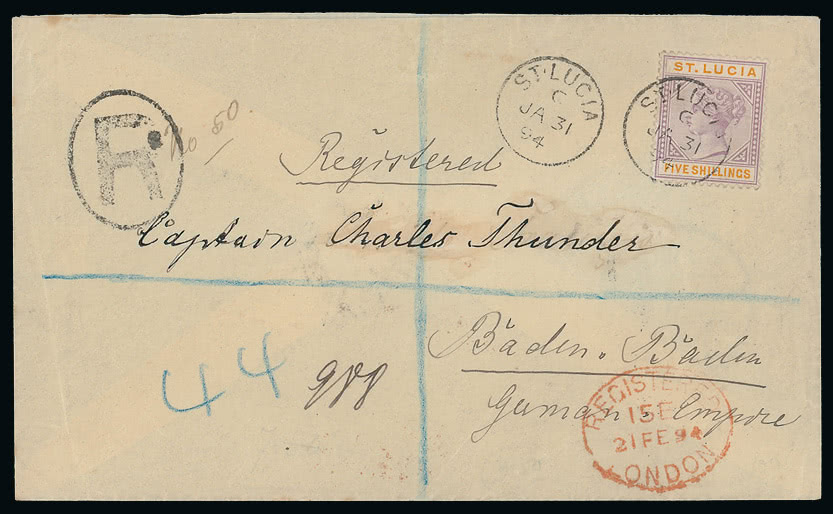 ST. LUCIA
FIVE SHILLINGS
ST. LUCIA
C
JA 31
94
ST. LUCIA
C
JA 31
94
R
No 50.
Registered
Captain Charles Thunder
Baden-Baden
German Empire
44
988
REGISTERED
15 FE
21 FE 94
LONDON